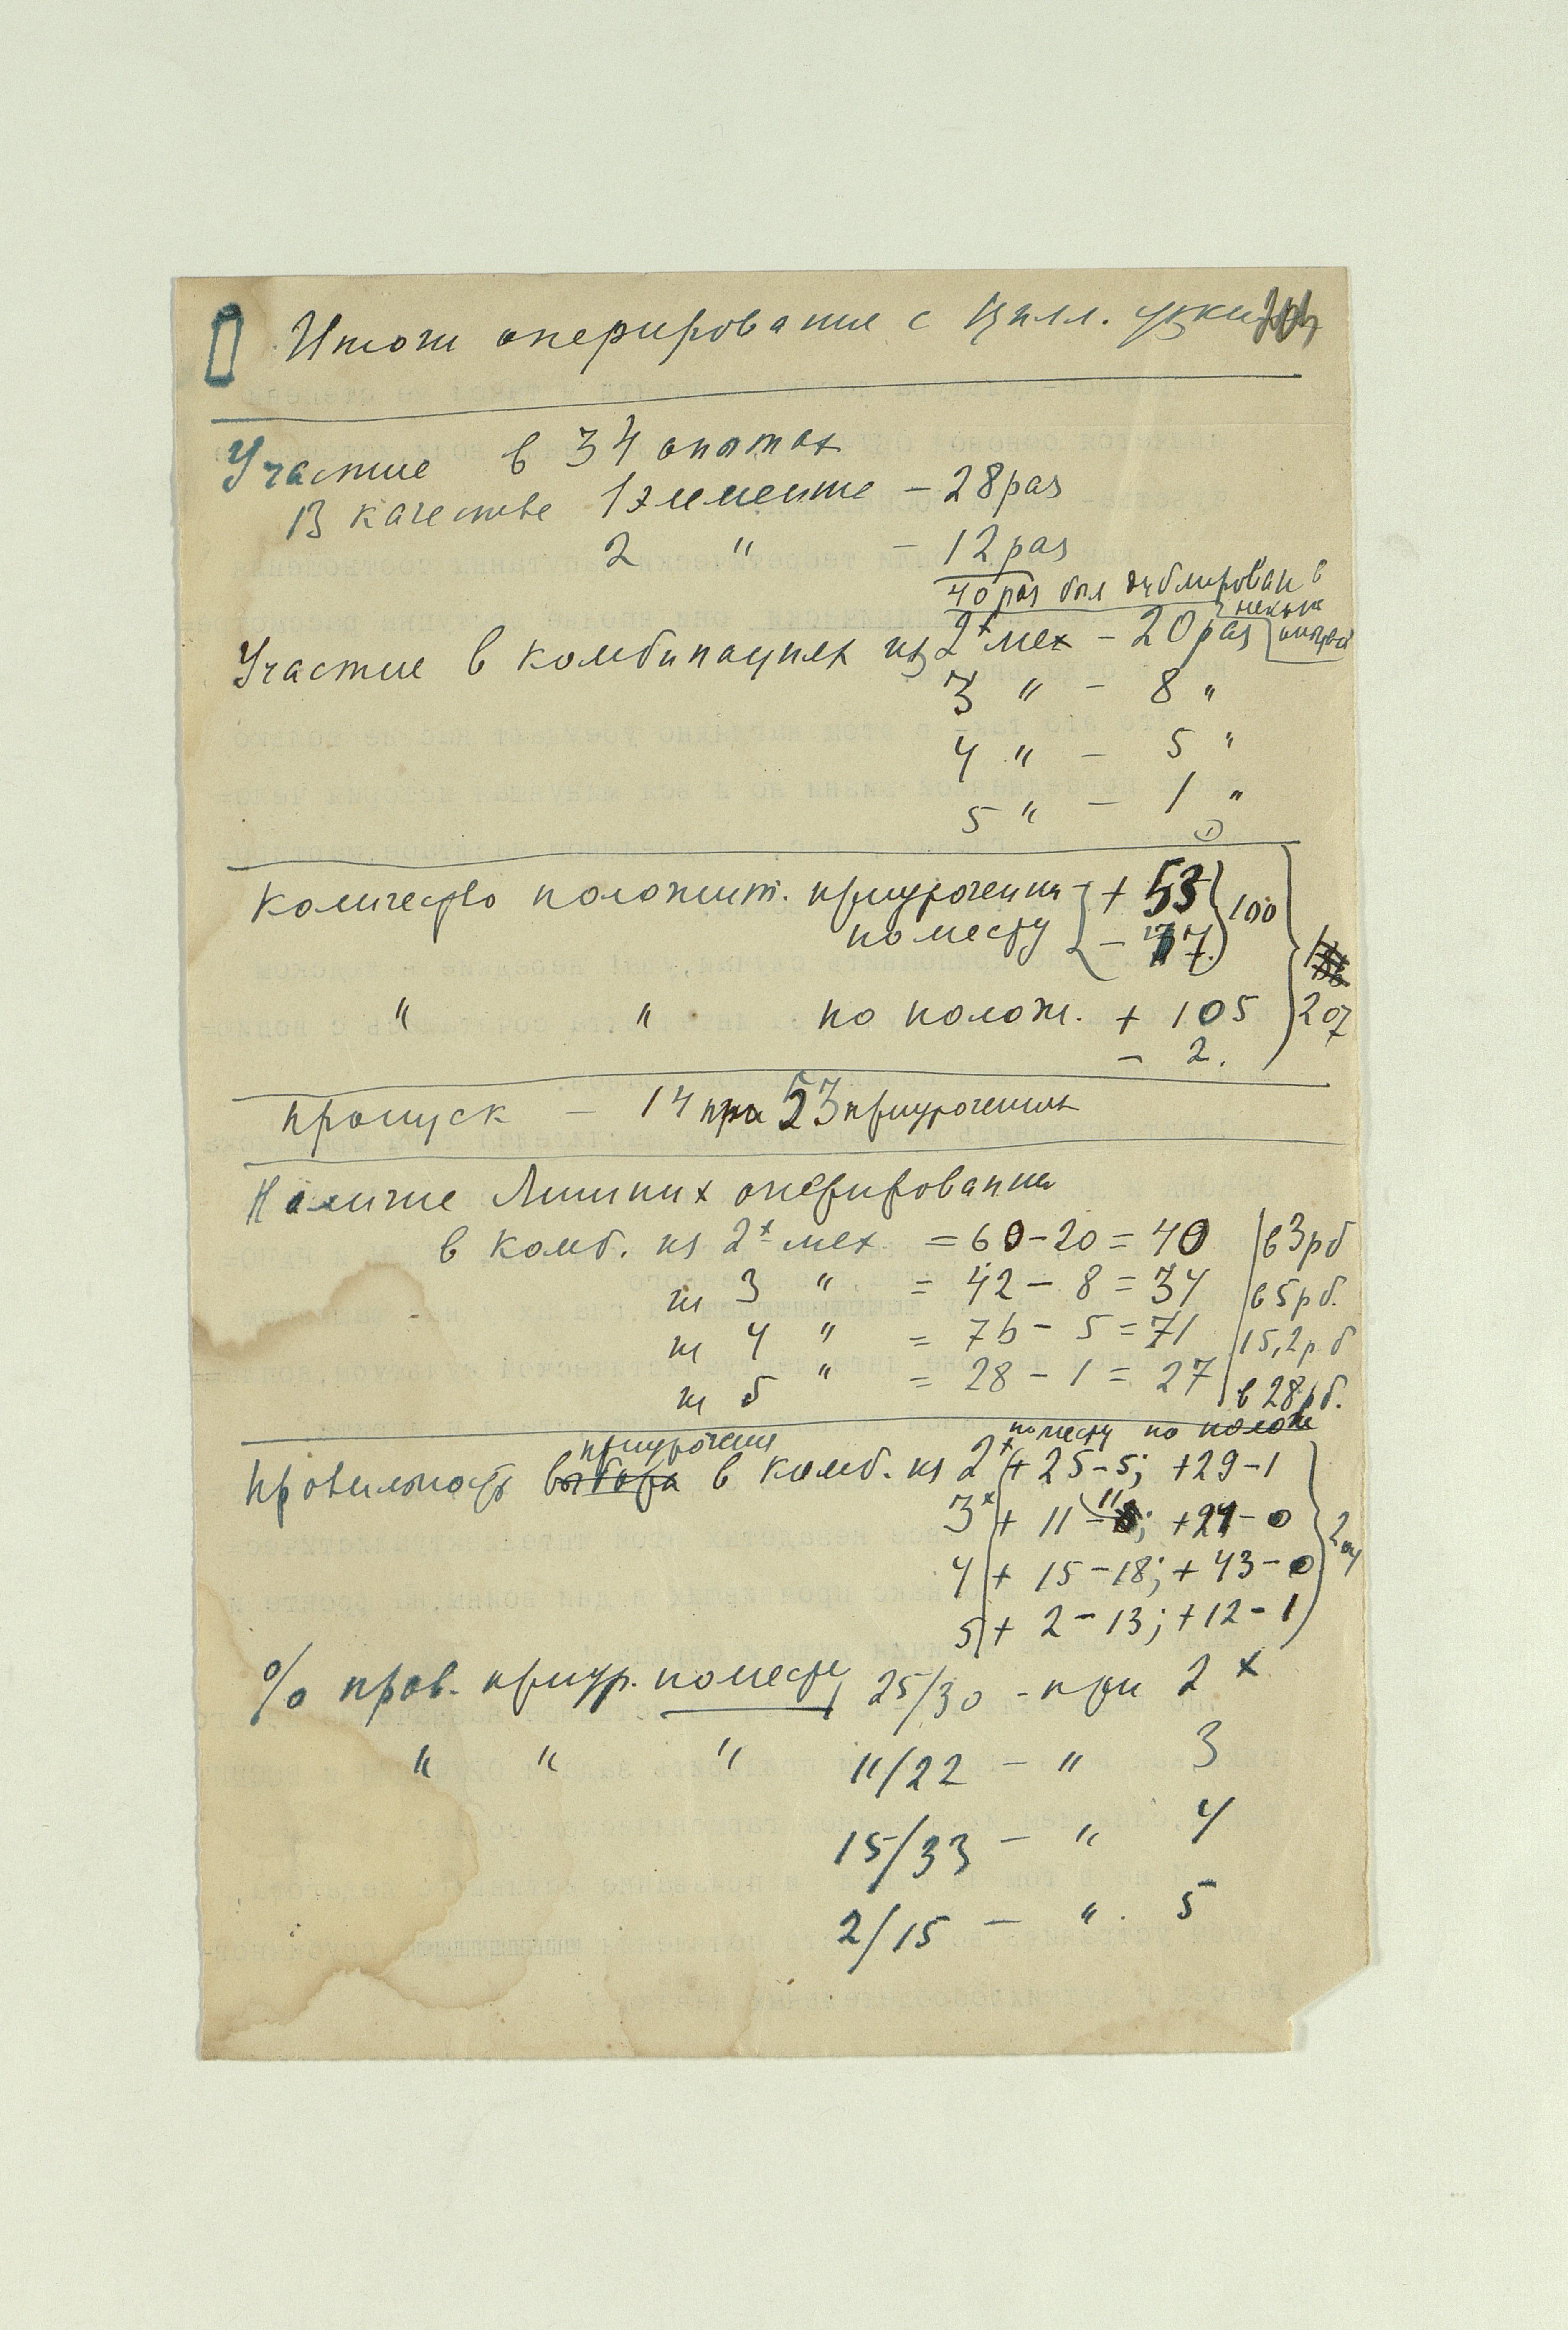 Итоги оперирования с цилл. узким
Участие в 34 опытах
В качестве 1 элемента – 28 раз
2 " – 12 раз
40 раз был дублирован в
неких
Участие в комбинациях из 2х мех – 20 раз
3 " – 8 "
4 " – 5 "
5 " – 1 "
Количество положит. приурочения + 53 } 100
по месту
" " по полож. + 105 } 207
– 2.
пропуск – 14 при 53 приурочениях
Наличие лишних оперирования
в комб. из 2х мех = 60 – 20 = 40 | в 3 р б
из 3 " = 42 – 8 = 34 | в 5 р б.
из 4 " = 76 – 5 = 71 | 15,2 р б
из 5 " = 28 – 1 = 27 | в 28 р б.
приурочения по месту по полож
Правильность выбора в комб. из 2х + 25 – 5; + 29 – 1
3х + 11 – 11; + 21 – 0
4 + 15 – 18; + 43 – 0
5 + 2 – 13; + 12 – 1
% прав. приур. по месту 25/30 – при 2х
" " " 11/22 – " 3
15/33 – " 4
2/15 – " 5